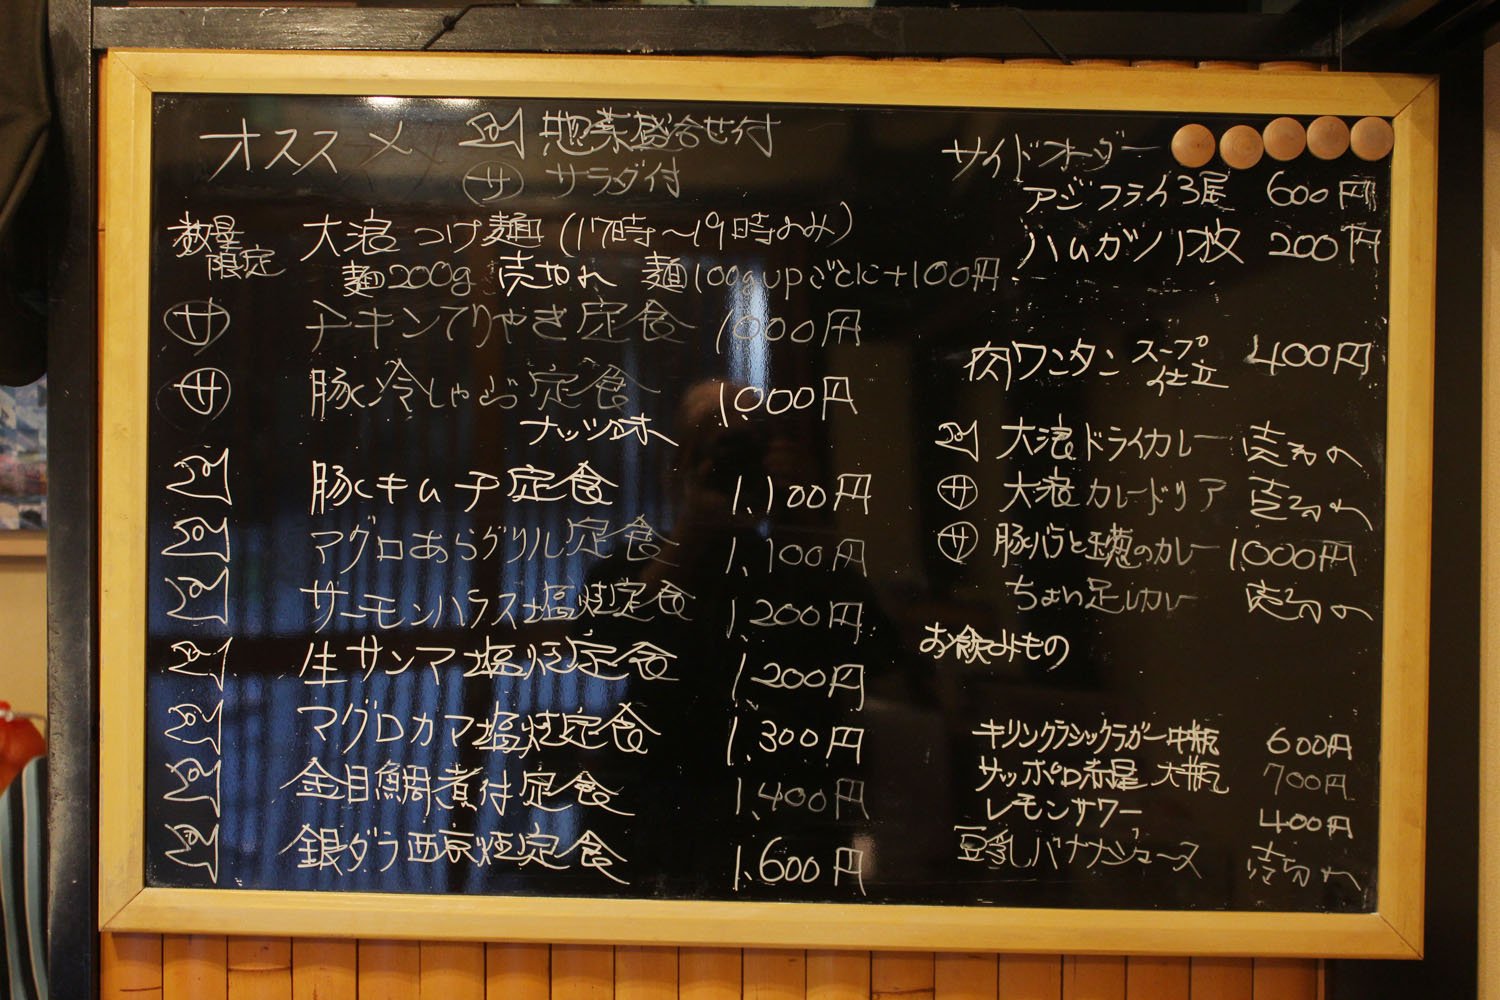 オススメ
惣菜盛合せ付
サ サラダ付
数量限定 大浪つけ麺(17時〜19時のみ)
麺200g 売切れ 麺100gupごとに+100円
サ チキンてりやき定食 1000円
サ 豚冷しゃぶ定食 1,000円
ナッツ味
豚キムチ定食 1,100円
マグロあらグリル定食 1,100円
サーモンハラス塩焼定食 1,200円
生サンマ塩焼定食 1,200円
マグロカマ塩焼定食 1,300円
金目鯛煮付定食 1,400円
銀ダラ西京焼定食 1,600円
サイドオーダー
アジフライ3尾 600円
ハムカツ1枚 200円
肉ワンタンスープ仕立 400円
大浪ドライカレー 売切れ
サ 大浪カレードリア 売切れ
サ 豚バラと玉葱のカレー 1000円
ちょい足しカレー 売切れ
お飲みもの
キリンクラシックラガー中瓶 600円
サッポロ赤星大瓶 700円
レモンサワー 400円
豆乳バナナジュース 売切れ